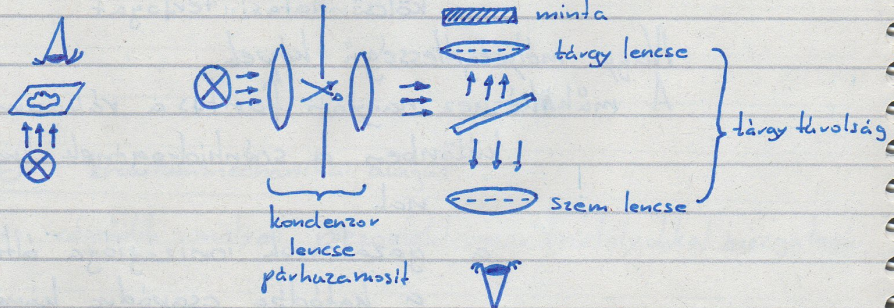 minta
tárgy lencse
tárgy távolság
szem lencse
kondenzor
lencse
párhuzamosít